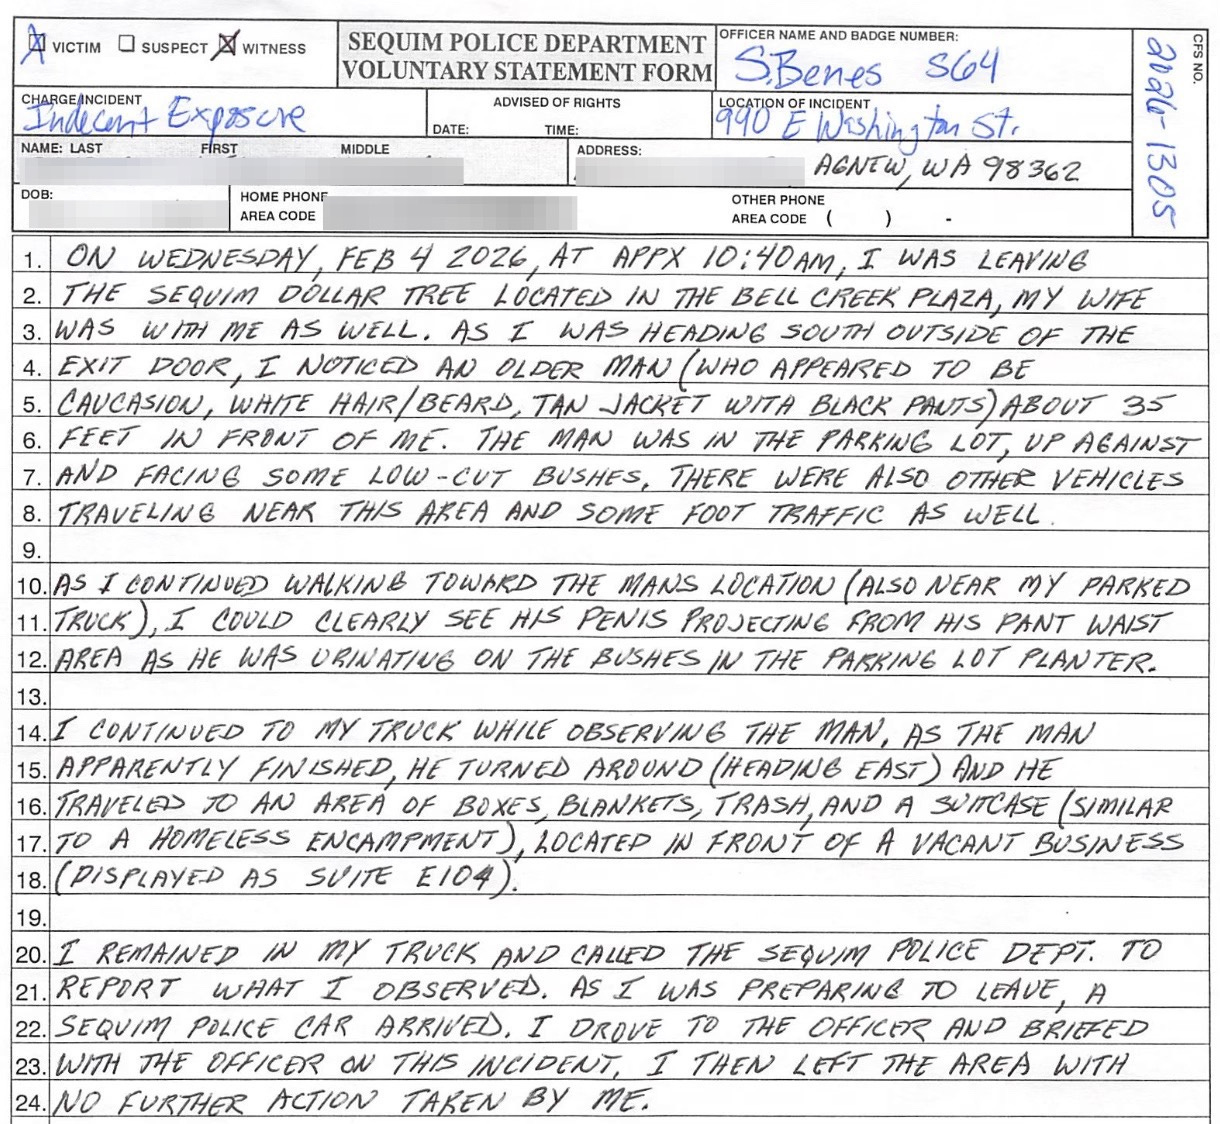 VICTIM SUSPECT WITNESS
SEQUIM POLICE DEPARTMENT
VOLUNTARY STATEMENT FORM
OFFICER NAME AND BADGE NUMBER:
S. Benes S64
CFS NO.
2026-1305
CHARGE/INCIDENT
Indecent Exposure
ADVISED OF RIGHTS
DATE: TIME:
LOCATION OF INCIDENT
990 E Washington St.
NAME: LAST FIRST MIDDLE
ADDRESS:
AGNEW, WA 98362
DOB:
HOME PHONE
AREA CODE
OTHER PHONE
AREA CODE ( ) -
1. ON WEDNESDAY, FEB 4 2026, AT APPX 10:40AM, I WAS LEAVING
2. THE SEQUIM DOLLAR TREE LOCATED IN THE BELL CREEK PLAZA, MY WIFE
3. WAS WITH ME AS WELL. AS I WAS HEADING SOUTH OUTSIDE OF THE
4. EXIT DOOR, I NOTICED AN OLDER MAN (WHO APPEARED TO BE
5. CAUCASION, WHITE HAIR/BEARD, TAN JACKET WITH BLACK PANTS) ABOUT 35
6. FEET IN FRONT OF ME. THE MAN WAS IN THE PARKING LOT, UP AGAINST
7. AND FACING SOME LOW-CUT BUSHES. THERE WERE ALSO OTHER VEHICLES
8. TRAVELING NEAR THIS AREA AND SOME FOOT TRAFFIC AS WELL.
9.
10. AS I CONTINUED WALKING TOWARD THE MANS LOCATION (ALSO NEAR MY PARKED
11. TRUCK), I COULD CLEARLY SEE HIS PENIS PROJECTING FROM HIS PANT WAIST
12. AREA AS HE WAS URINATING ON THE BUSHES IN THE PARKING LOT PLANTER.
13.
14. I CONTINUED TO MY TRUCK WHILE OBSERVING THE MAN. AS THE MAN
15. APPARENTLY FINISHED, HE TURNED AROUND (HEADING EAST) AND HE
16. TRAVELED TO AN AREA OF BOXES, BLANKETS, TRASH, AND A SUITCASE (SIMILAR
17. TO A HOMELESS ENCAMPMENT), LOCATED IN FRONT OF A VACANT BUSINESS
18. (DISPLAYED AS SUITE E104).
19.
20. I REMAINED IN MY TRUCK AND CALLED THE SEQUIM POLICE DEPT. TO
21. REPORT WHAT I OBSERVED. AS I WAS PREPARING TO LEAVE, A
22. SEQUIM POLICE CAR ARRIVED. I DROVE TO THE OFFICER AND BRIEFED
23. WITH THE OFFICER ON THIS INCIDENT. I THEN LEFT THE AREA WITH
24. NO FURTHER ACTION TAKEN BY ME.